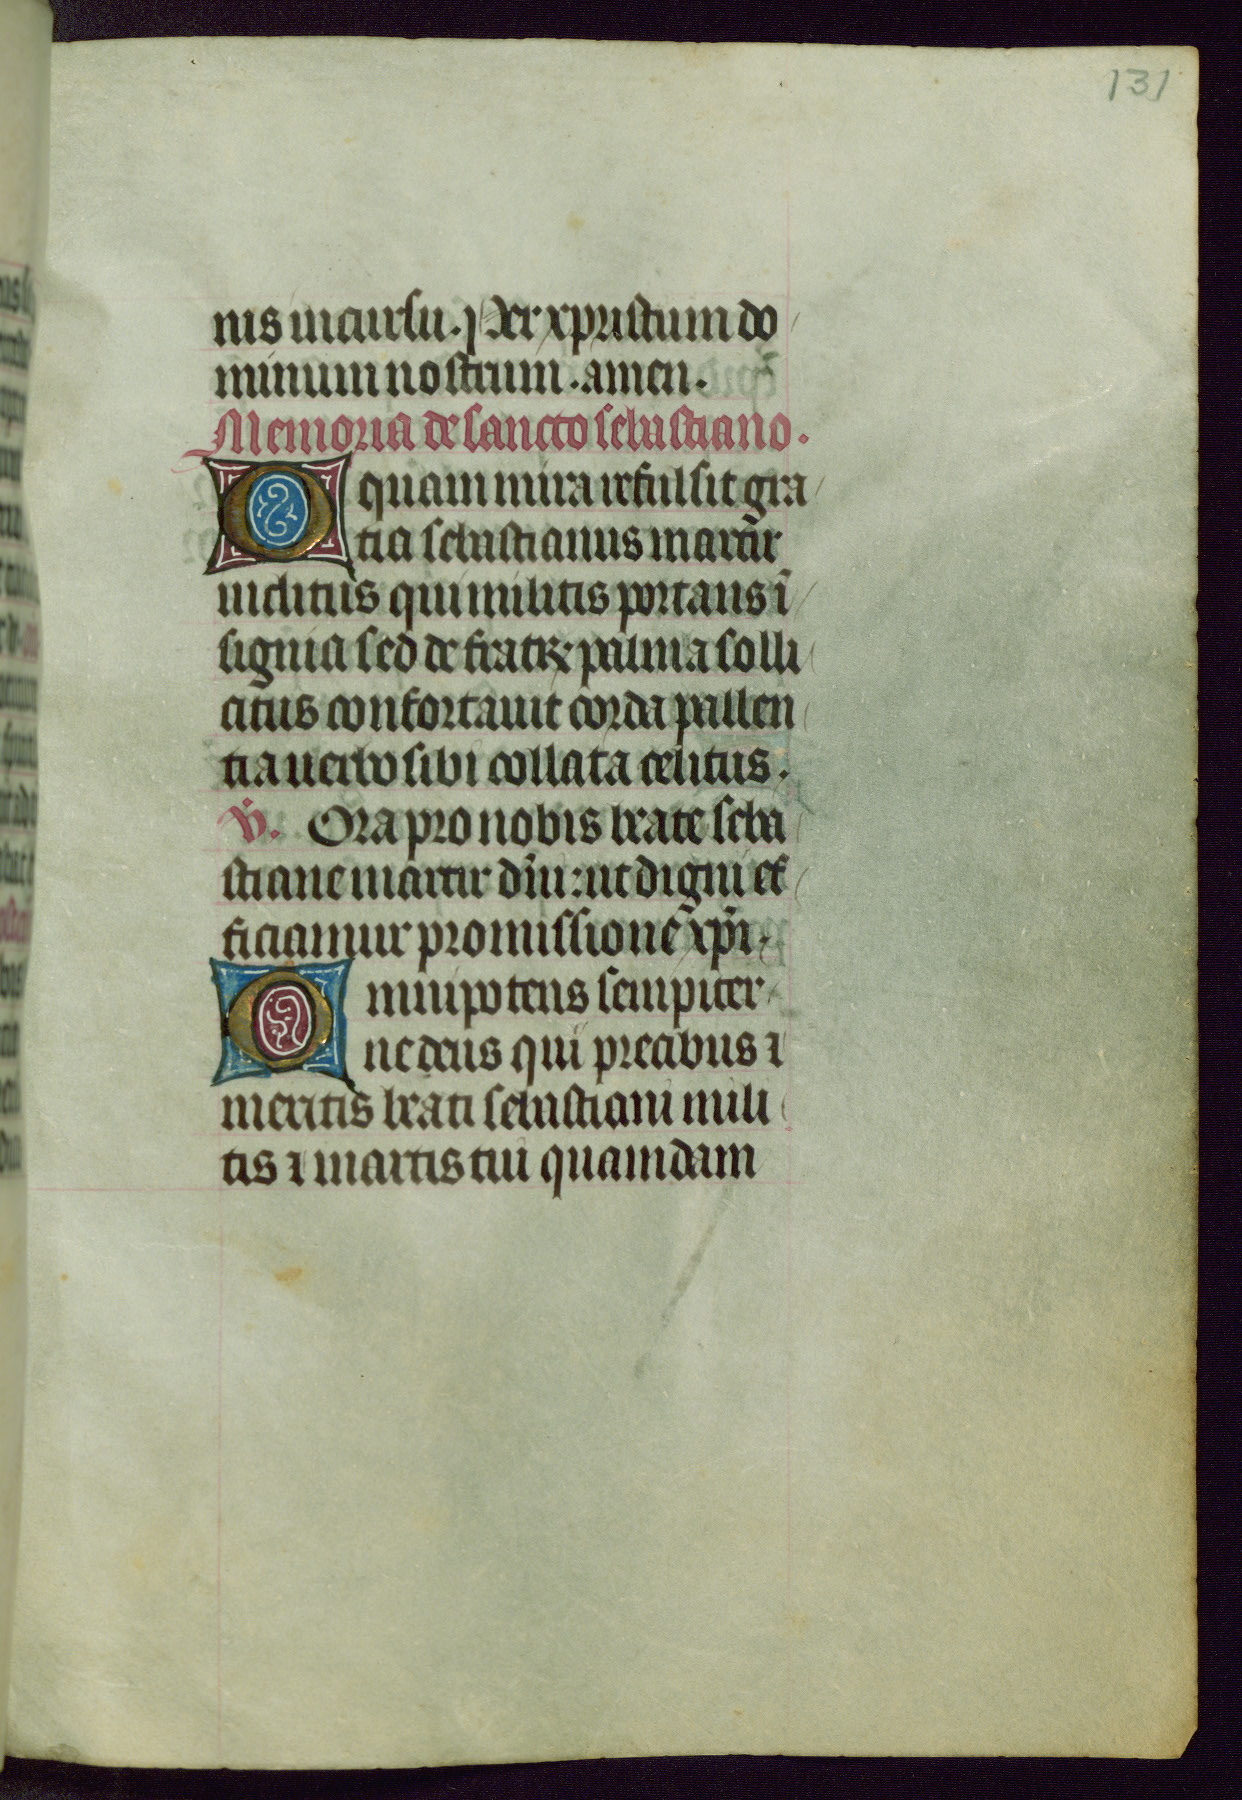 131
nis incursu. Per xpristum do
minum nostrum. amen.
Memoria de sancto sebastiano.
O quam mira refulsit gra
tia sebastianus martir̄
inclitus qui militis portans ī
signia sed de fratrꝝ palma solli
citus confortauit corda pallen
tia uerbo sibi collata celitus.
v̄. Ora pro nobis beate seba
stiane martir dn̄i: ut digni ef
ficiamur promissione xp̄i.
Omnipotens sempiter
ne deus qui precibus ⁊
meritis beati sebastiani mili
tis ⁊ martis tui quamdam